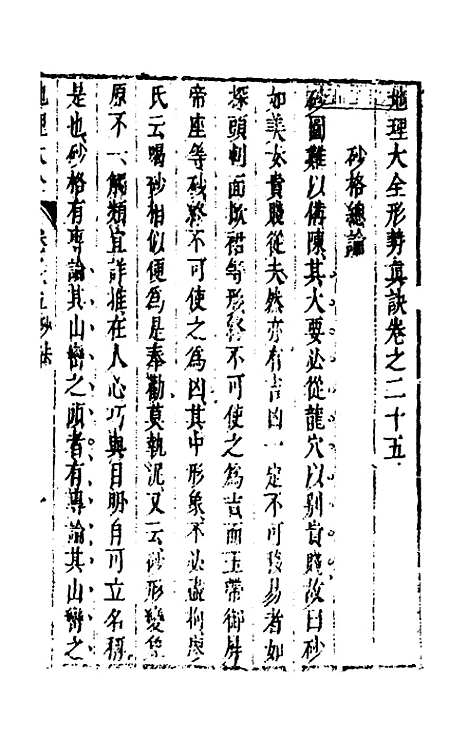 地理大全形勢真訣卷之二十五
砂格總論
砂圖難以備陳其大要必從龍穴以别貴賤故曰砂
如美女貴賤從夫然亦有吉凶一定不可移易者如
探頭刺面掀裙等形終不可使之為吉而玉帶御屏
帝座等砂終不可使之為凶其中形象不必盡拘廖
氏云喝砂相似便為是奉勸莫執泥又云砂形變集
原不一觸類宜詳推在人心巧與目明自可立名稱
是也砂格有專論其山巒之頭者有專論其山巒之
地理大全
卷二十五砂法
一